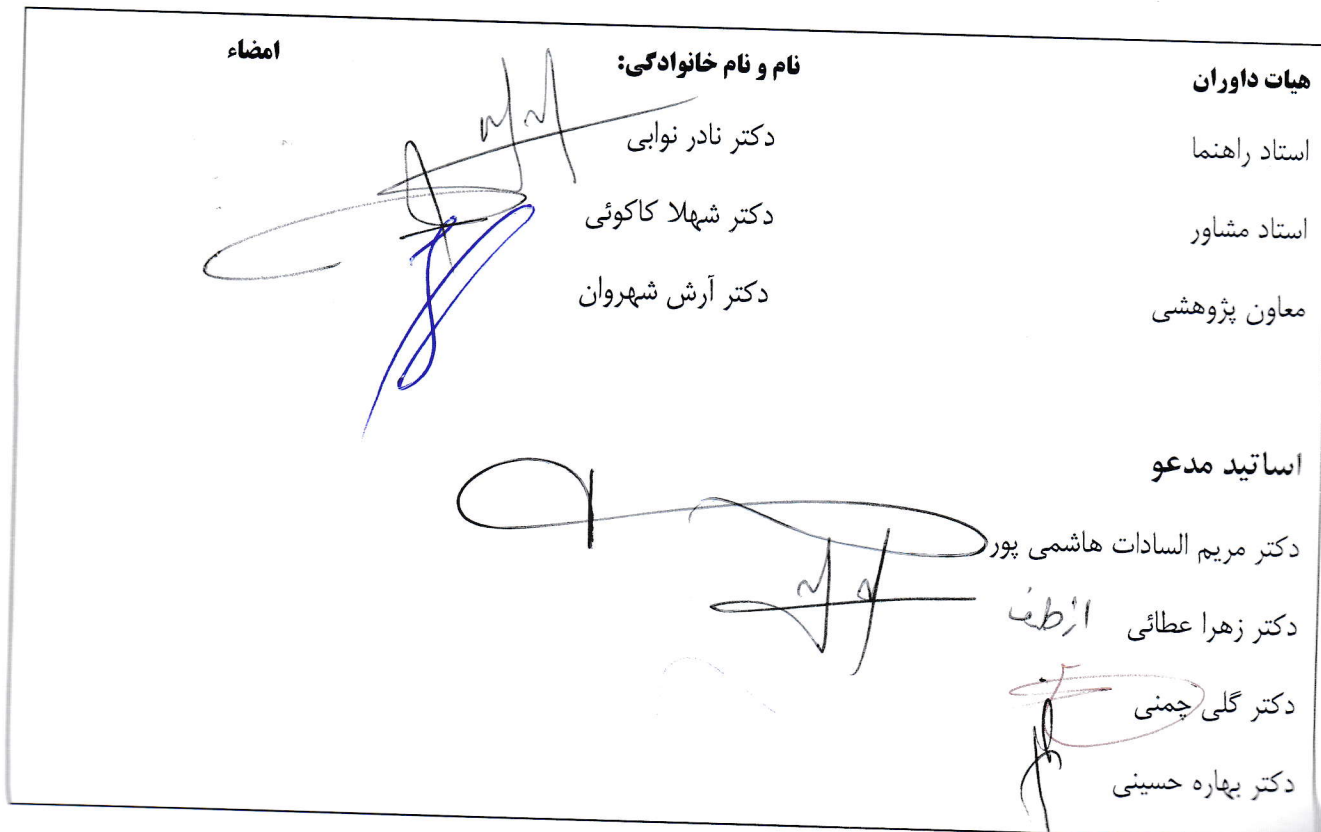 هیات داوران نام و نام خانوادگی: امضاء
استاد راهنما دکتر نادر نوابی
استاد مشاور دکتر شهلا کاکوئی
معاون پژوهشی دکتر آرش شهروان
اساتید مدعو
دکتر مریم السادات هاشمی پور
دکتر زهرا عطائی از طرف
دکتر گلی چمنی
دکتر بهاره حسینی